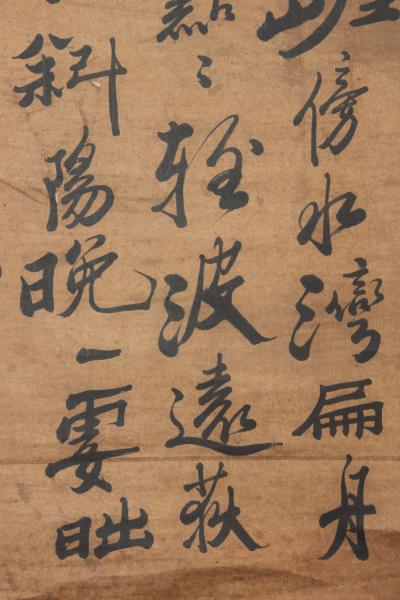 傍水灣扁舟
點々輕波遠荻
斜陽晚一霎